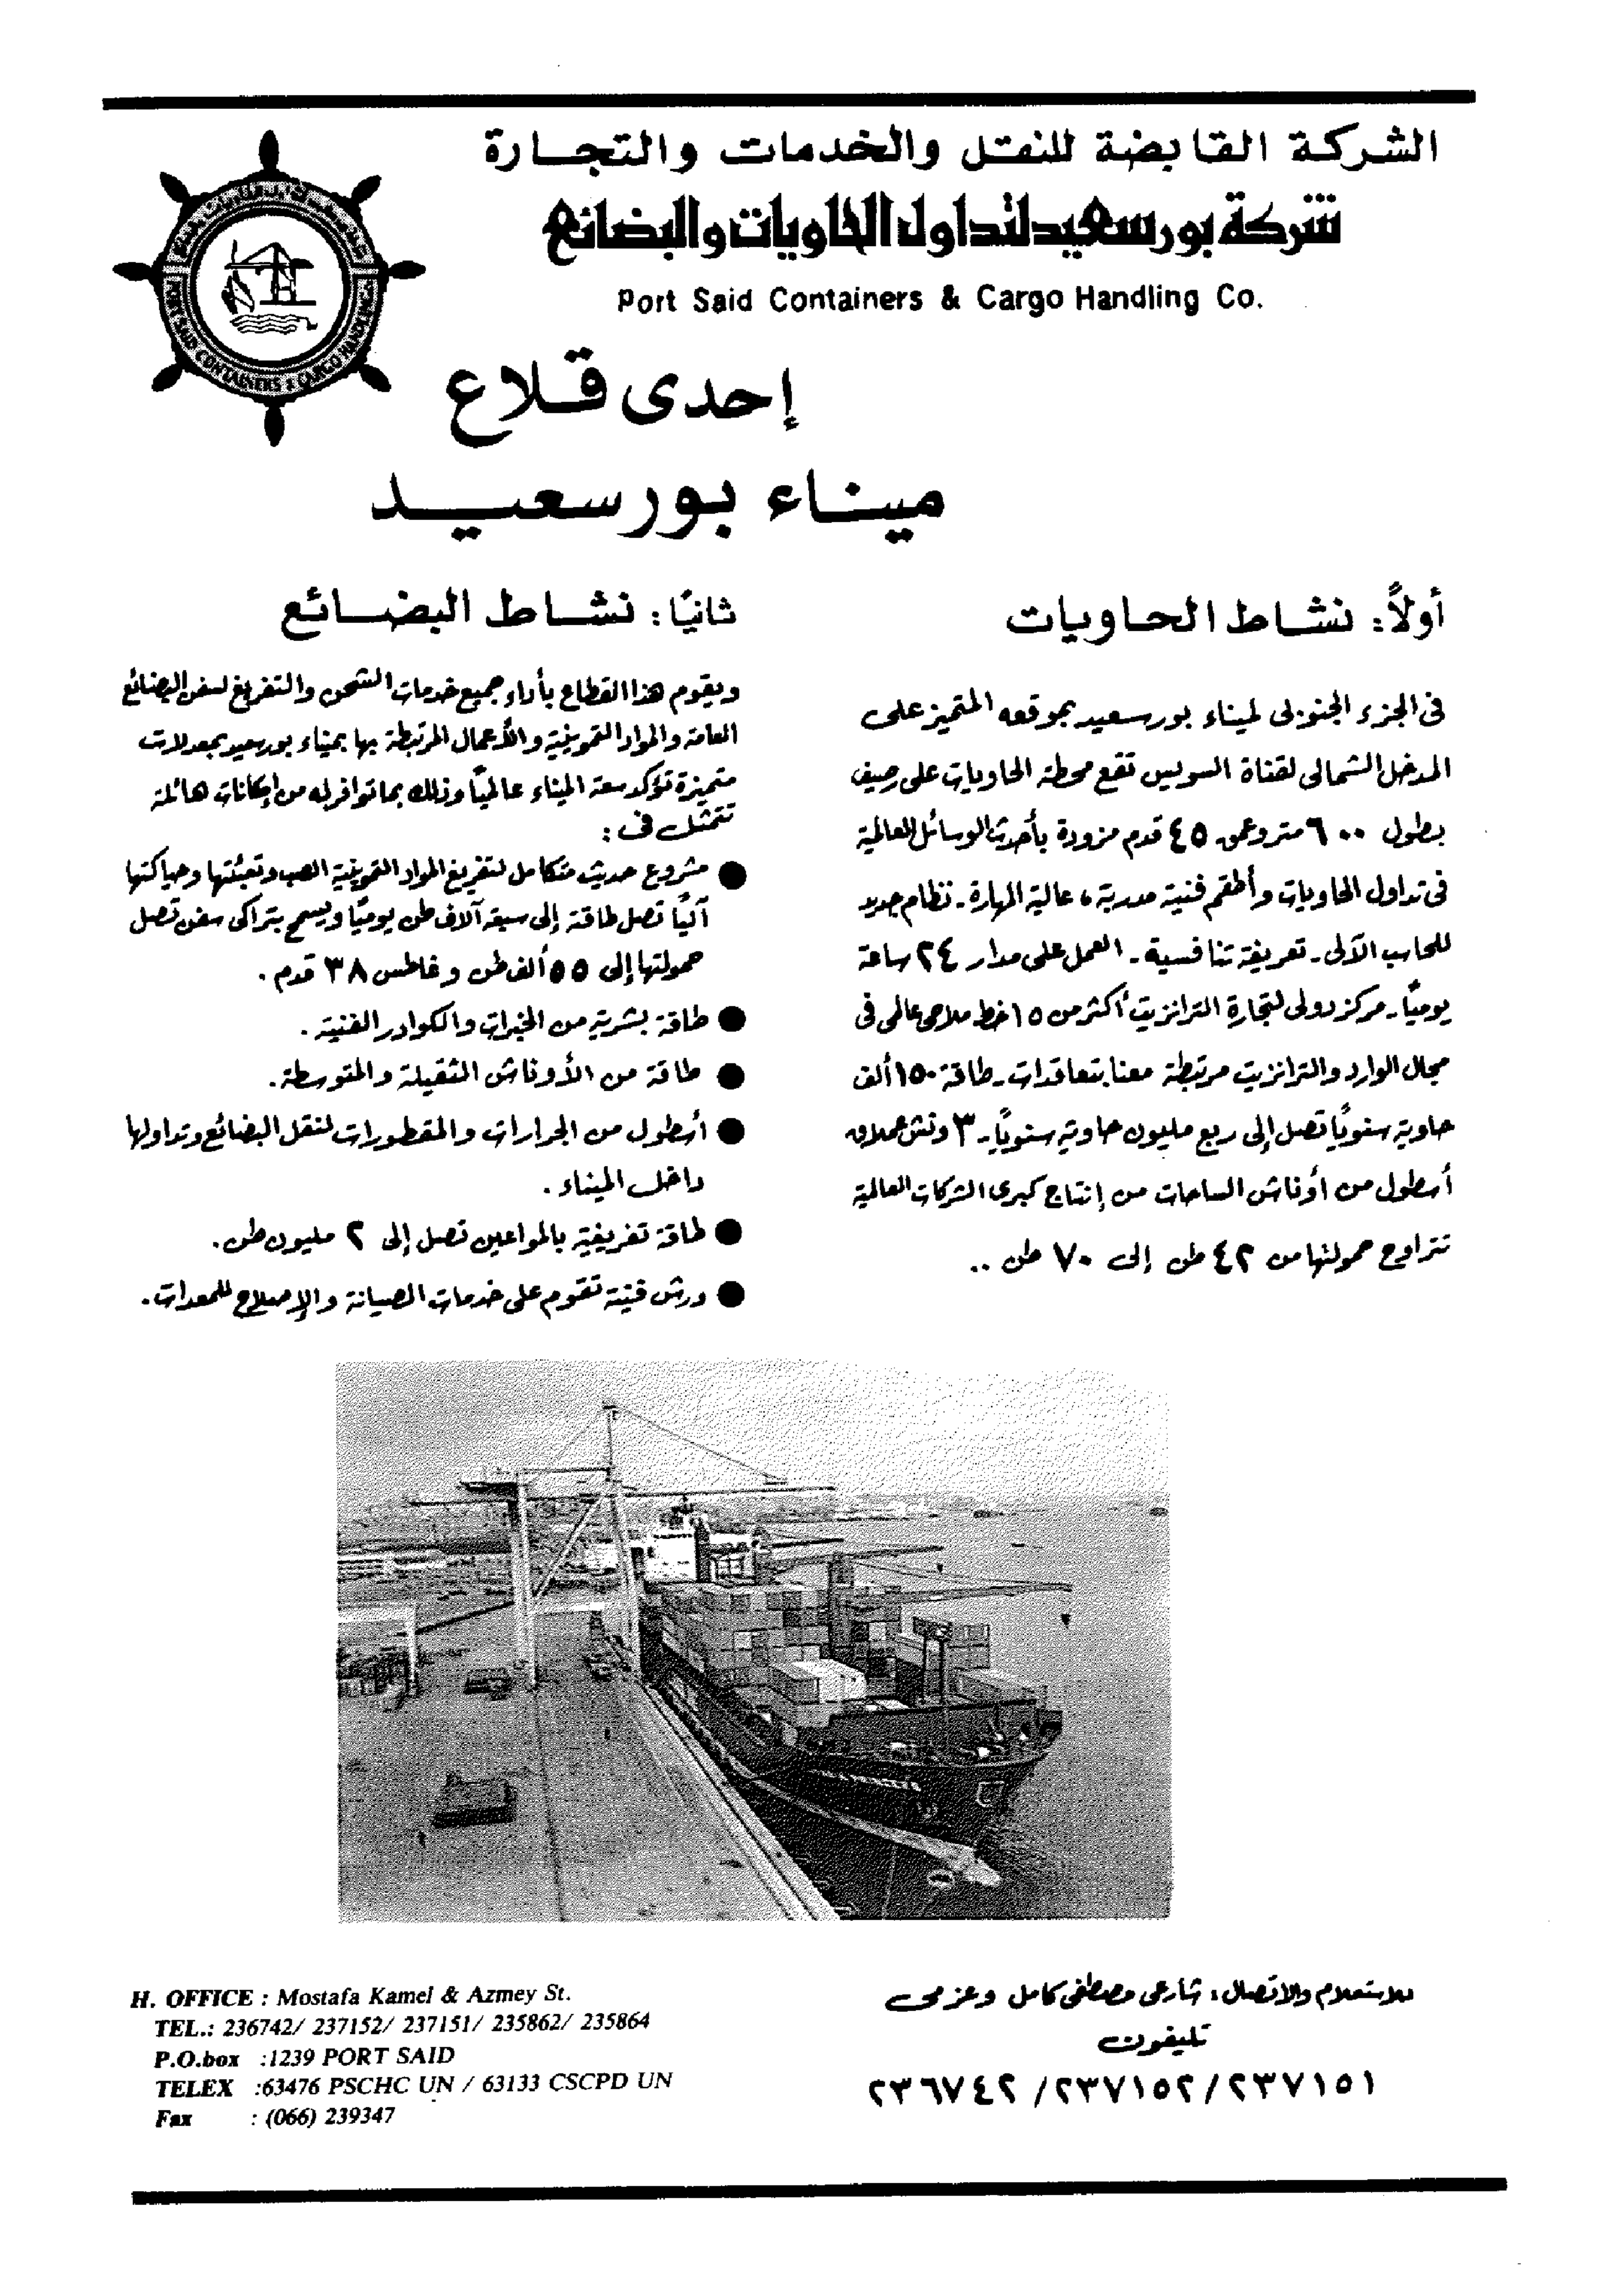 الشركة القابضة للنقل والخدمات والتجارة
شركة بورسعيد لتداول الحاويات والبضائع
Port Said Containers & Cargo Handling Co.
PORT SAID CONTAINERS & CARGO HANDLING
إحدى قلاع
ميناء بورسعيد
أولاً: نشاط الحاويات
فى الجزء الجنوبى لميناء بورسعيد بموقعه المتميز على
المدخل الشمالى لقناة السويس تقع محطة الحاويات على رصيف
بطول ٦٠٠ متر وعمق ٤٥ قدم مزودة بأحدث الوسائل العالمية
فى تداول الحاويات وأطقم فنية مدربة، عالية المهارة - نظام جديد
للحاسب الآلى - تعريفة تنافسية - العمل على مدار ٢٤ ساعة
يوميًا - مركز دولى لتجارة الترانزيت أكثر من ١٥ خط ملاحى عالمى فى
مجال الوارد والترانزيت مرتبطة معنا بتعاقدات - طاقة ١٥٠ ألف
حاوية سنويًا تصل إلى ربع مليون حاوية سنويًا - ٣ ونش عملاق
أسطول من أوناش الساحات من إنتاج كبرى الشركات العالمية
تتراوح حمولتها من ٤٢ طن إلى ٧٠ طن ..
ثانيًا: نشاط البضائع
ويقوم هذا القطاع بأداء جميع خدمات الشحن والتفريغ لسفن البضائع
العامة والمواد التموينية والأعمال المرتبطة بها بميناء بورسعيد بمعدلات
متميزة تؤكد سعة الميناء عالميًا وذلك بما توافر له من إمكانات هائلة
تتمثل فى:
● مشروع حديث متكامل لتفريغ المواد التموينية الصب وتعبئتها وحياكتها
آليًا تصل طاقة إلى سبعة آلاف طن يوميًا ويسمح بتراكى سفن تصل
حمولتها إلى ٥٥ ألف طن وغاطس ٣٨ قدم.
● طاقة بشرية من الخبرات والكوادر الفنية.
● طاقة من الأوناش الثقيلة والمتوسطة.
● أسطول من الجرارات والمقطورات لنقل البضائع وتداولها
داخل الميناء.
● طاقة تفريغية بالمواعين تصل إلى ٢ مليون طن.
● ورش فنية تقوم على خدمات الصيانة والإصلاح للمعدات.
للاستعلام والاتصال: شارعى مصطفى كامل وعزمى
تليفون
٢٣٧١٥١/ ٢٣٧١٥٢/ ٢٣٦٧٤٢
H. OFFICE : Mostafa Kamel & Azmey St.
TEL.: 236742/ 237152/ 237151/ 235862/ 235864
P.O.box :1239 PORT SAID
TELEX :63476 PSCHC UN / 63133 CSCPD UN
Fax : (066) 239347